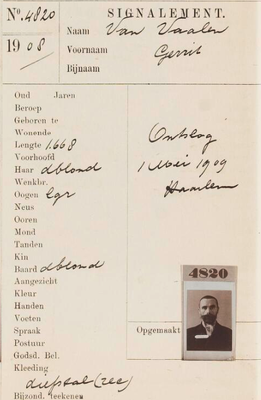 No. 4820
SIGNALEMENT.
1908
Naam Van Vaalen
Voornaam Gerrit
Bijnaam
Oud Jaren
Beroep
Geboren te
Wonende
Ontslag
Lengte 1.668
Voorhoofd
1 Mei 1909
Haar dblond
Wenkbr.
Haarlem
Oogen lgr
Neus
Ooren
Mond
Tanden
Kin
Baard dblond
Aangezicht
4820
Kleur
Handen
Voeten
Spraak
Opgemaakt
Postuur
Godsd. Bel.
Kleeding
diefstal (rec)
Bijzond. teekenen